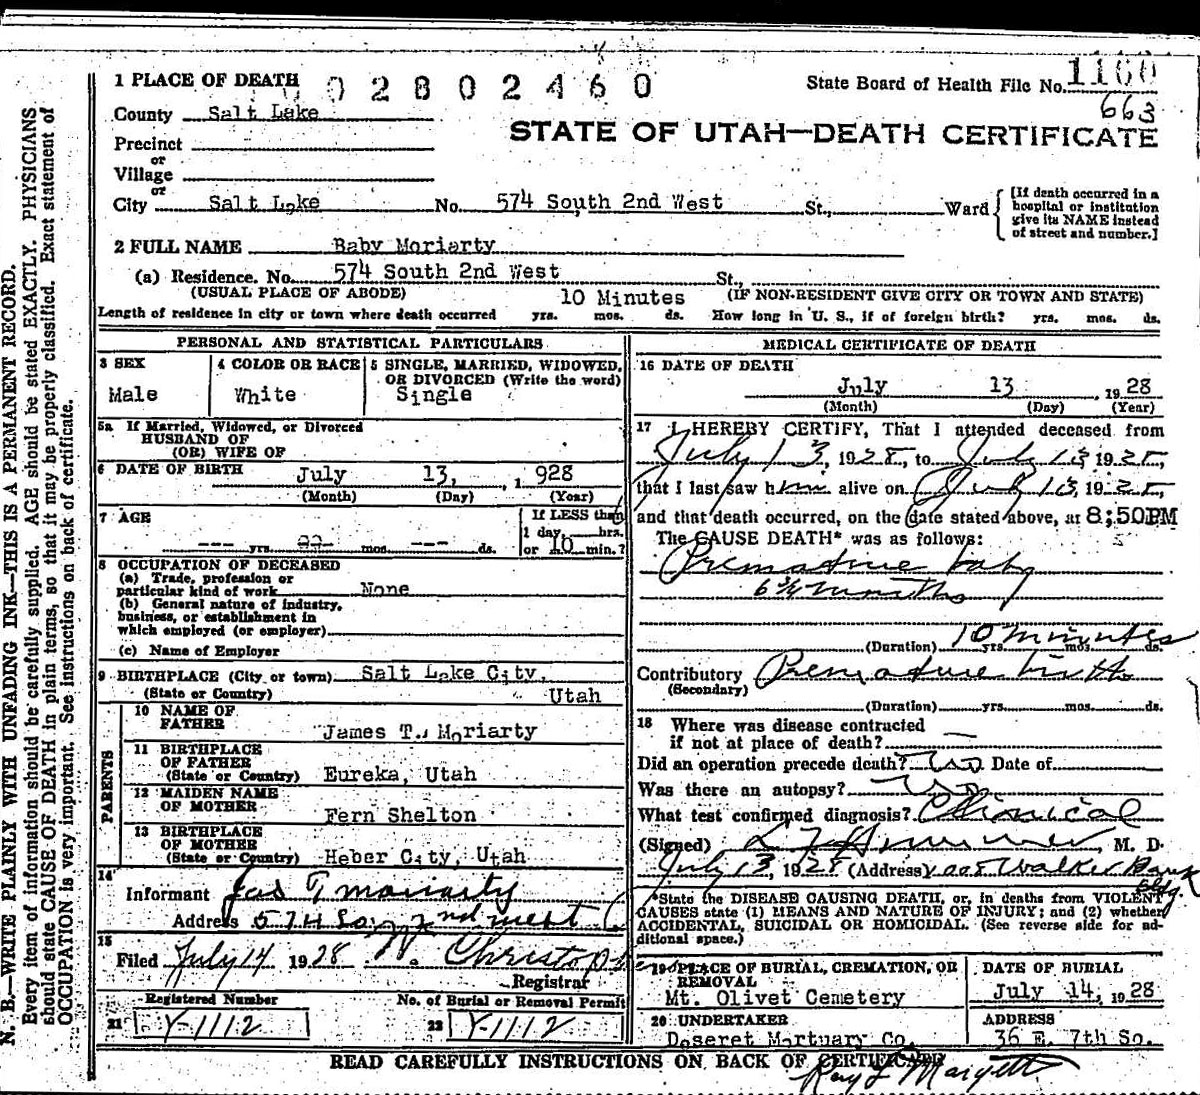 1 PLACE OF DEATH 02802460 State Board of Health File No. 1160
663
County Salt Lake
STATE OF UTAH—DEATH CERTIFICATE
Precinct
or
Village
or
City Salt Lake No. 574 South 2nd West St., Ward
[If death occurred in a hospital or institution give its NAME instead of street and number.]
2 FULL NAME Baby Moriarty
(a) Residence. No. 574 South 2nd West St.,
(USUAL PLACE OF ABODE) 10 Minutes (IF NON-RESIDENT GIVE CITY OR TOWN AND STATE)
Length of residence in city or town where death occurred yrs. mos. ds. How long in U. S., if of foreign birth? yrs. mos. ds.
PERSONAL AND STATISTICAL PARTICULARS
3 SEX
Male
4 COLOR OR RACE
White
5 SINGLE, MARRIED, WIDOWED,
OR DIVORCED (Write the word)
Single
5a If Married, Widowed, or Divorced
HUSBAND OF
(OR) WIFE OF
6 DATE OF BIRTH July 13, 1928
(Month) (Day) (Year)
7 AGE
--- yrs. mos. --- ds.
If LESS than
1 day, hrs.
or 10 min.?
8 OCCUPATION OF DECEASED
(a) Trade, profession or
particular kind of work None
(b) General nature of industry,
business, or establishment in
which employed (or employer)
(c) Name of Employer
9 BIRTHPLACE (City or town) Salt Lake City,
(State or Country) Utah
PARENTS
10 NAME OF
FATHER James T. Moriarty
11 BIRTHPLACE
OF FATHER
(State or Country) Eureka, Utah
12 MAIDEN NAME
OF MOTHER Fern Shelton
13 BIRTHPLACE
OF MOTHER
(State or Country) Heber City, Utah
14
Informant Jas T Moriarty
Address 574 So. 2nd West
15
Filed July 14 1928 W. Christop
Registrar
Registered Number
21 Y-1112
No. of Burial or Removal Permit
22 Y-1112
MEDICAL CERTIFICATE OF DEATH
16 DATE OF DEATH
July 13, 1928
(Month) (Day) (Year)
17 I HEREBY CERTIFY, That I attended deceased from
July 13, 1928, to July 13 1928,
that I last saw him alive on July 13, 1928,
and that death occurred, on the date stated above, at 8:50PM
The CAUSE DEATH* was as follows:
Premature baby
6 3/4 months
(Duration) 10 minutes yrs. mos. ds.
Contributory Premature birth
(Secondary)
(Duration) yrs. mos. ds.
18 Where was disease contracted
if not at place of death? —
Did an operation precede death? no Date of
Was there an autopsy? no
What test confirmed diagnosis? Clinical
(Signed) M. D.
July 13, 1928 (Address) Walker Bank
Bldg.
*State the DISEASE CAUSING DEATH, or, in deaths from VIOLENT
CAUSES state (1) MEANS AND NATURE OF INJURY; and (2) whether
ACCIDENTAL, SUICIDAL OR HOMICIDAL. (See reverse side for ad-
ditional space.)
19 PLACE OF BURIAL, CREMATION, OR
REMOVAL
Mt. Olivet Cemetery
DATE OF BURIAL
July 14, 1928
20 UNDERTAKER
Deseret Mortuary Co.
ADDRESS
36 E. 7th So.
READ CAREFULLY INSTRUCTIONS ON BACK OF CERTIFICATE
Ray L Margetts
N. B.—WRITE PLAINLY WITH UNFADING INK—THIS IS A PERMANENT RECORD.
Every item of information should be carefully supplied. AGE should be stated EXACTLY. PHYSICIANS
should state CAUSE OF DEATH in plain terms, so that it may be properly classified. Exact statement of
OCCUPATION is very important. See instructions on back of certificate.